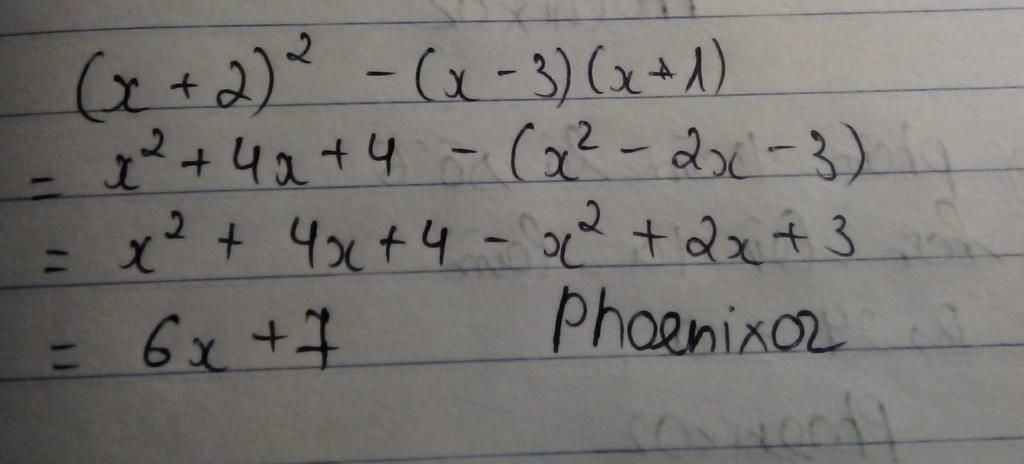 (x + 2)² - (x - 3)(x + 1)
= x² + 4x + 4 - (x² - 2x - 3)
= x² + 4x + 4 - x² + 2x + 3
= 6x + 7 Phoenix02